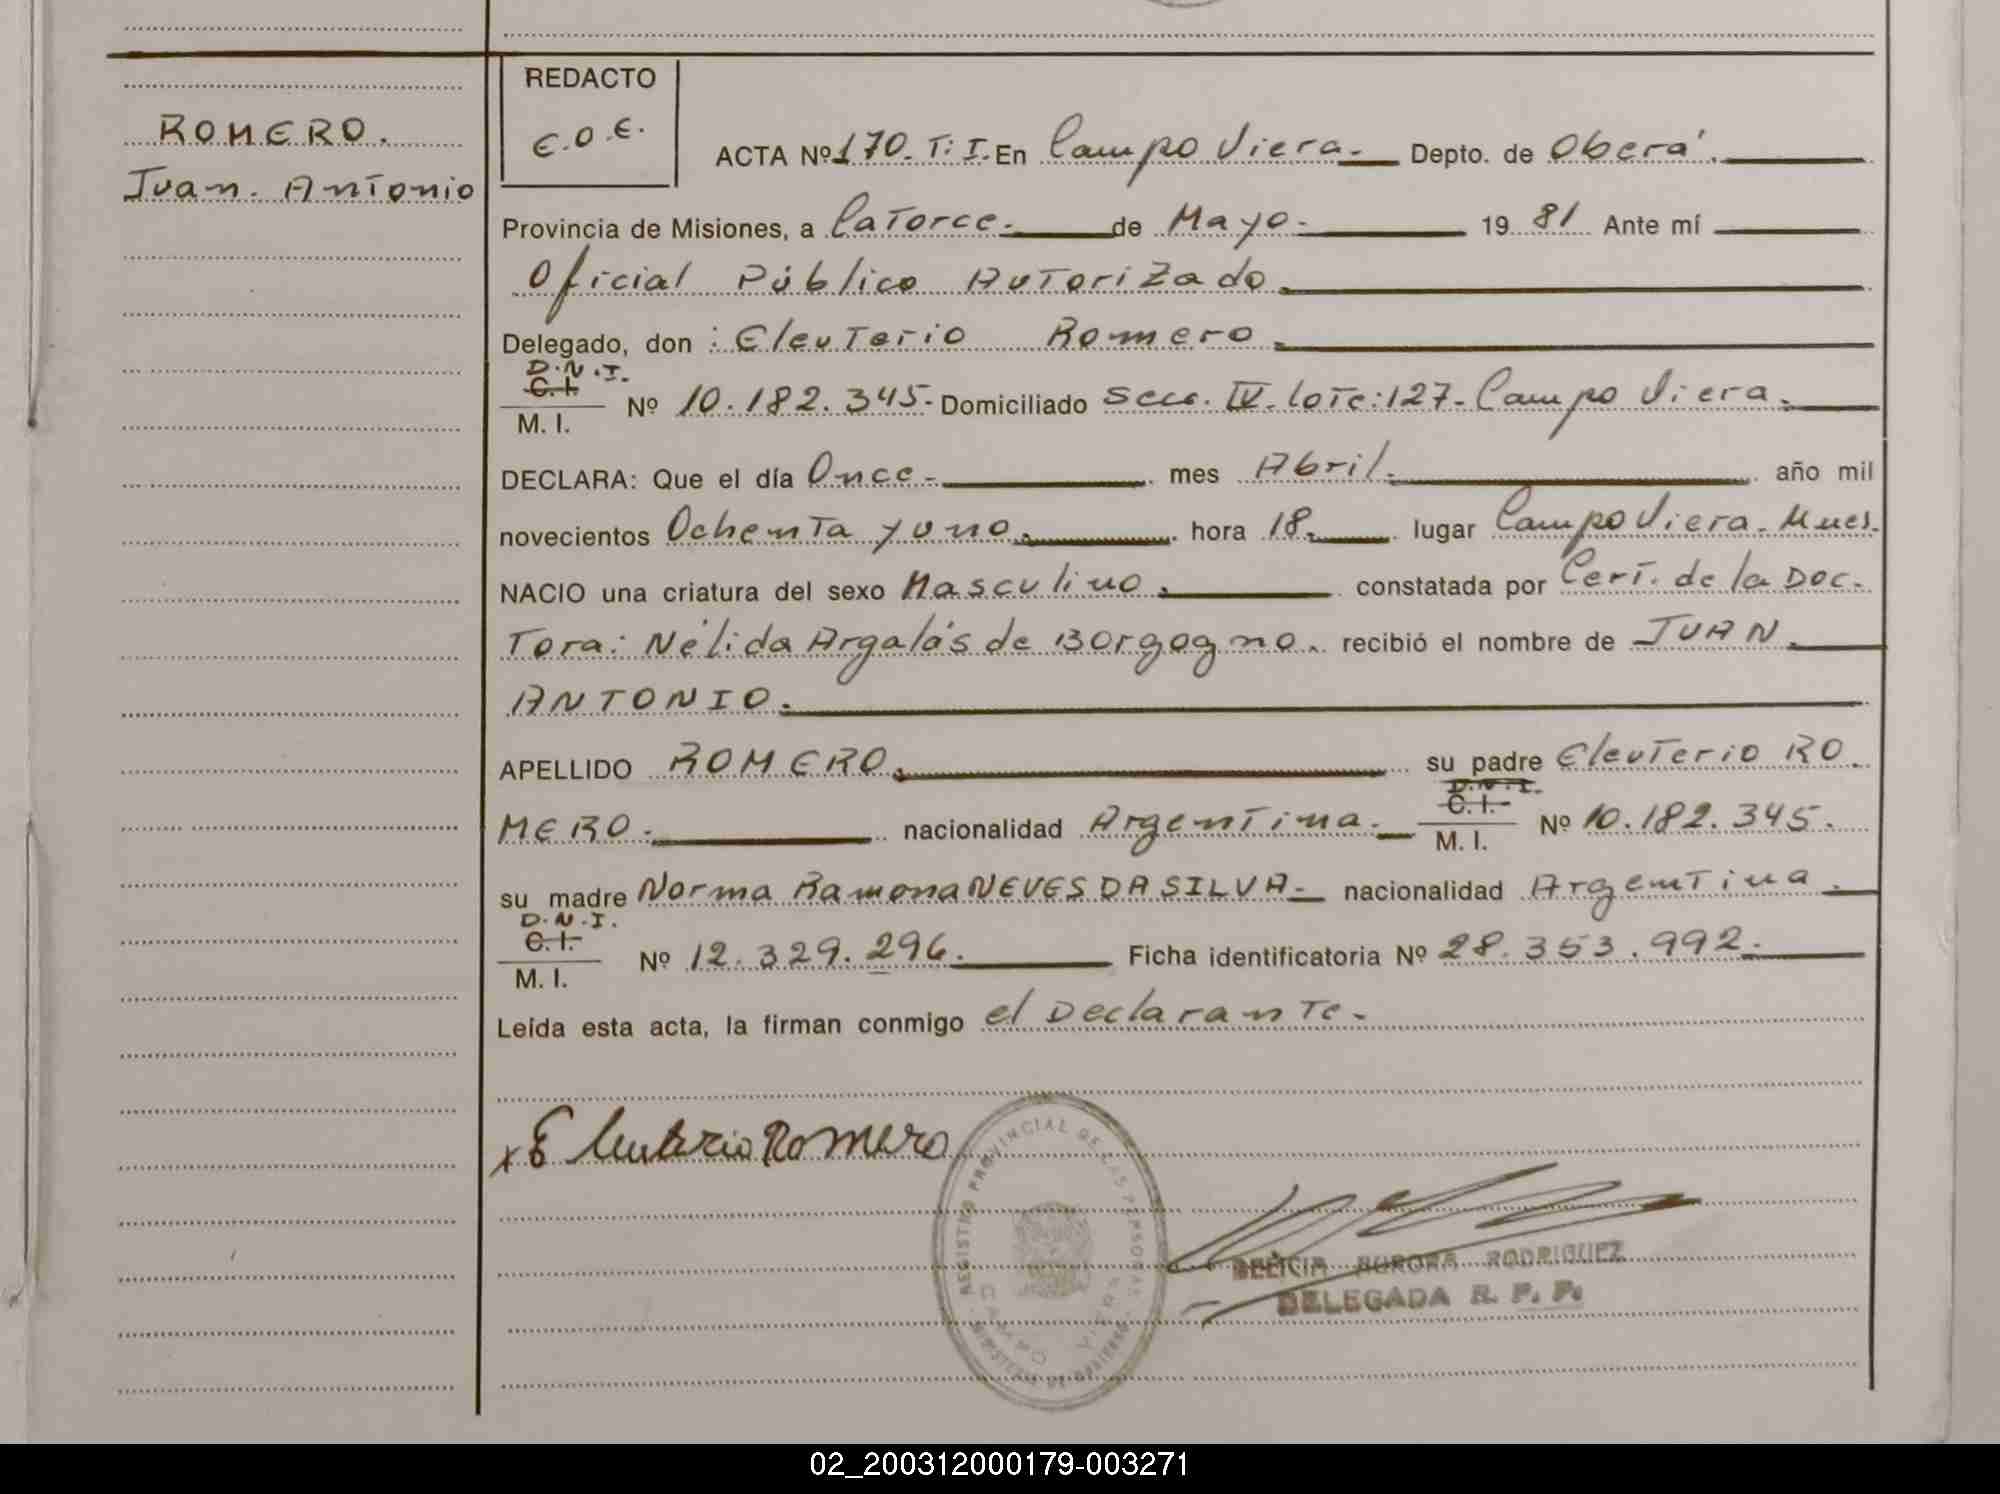 REDACTO
ROMERO.
Juan. Antonio
E.O.E.
ACTA Nº 170. T: I. En Campo Viera.- Depto. de Oberá.
Provincia de Misiones, a Catorce.- de Mayo.- 19 81 Ante mí
Oficial Público Autorizado.
Delegado, don : Eleuterio Romero.
D.N.I.
C.I.
M. I. Nº 10.182.345.- Domiciliado Secc. IV. lote: 127.- Campo Viera.
DECLARA: Que el día Once.- mes Abril. año mil
novecientos Ochenta y uno. hora 18. lugar Campo Viera. Mnes.
NACIO una criatura del sexo Masculino. constatada por Cert. de la Doc.
Tora: Nélida Argalás de Borgogno. recibió el nombre de JUAN.
ANTONIO.
APELLIDO ROMERO. su padre Eleuterio RO.
D.N.I.
C. I.
MERO.- nacionalidad Argentina.- M. I. Nº 10.182.345.
su madre Norma Ramona NEVES DA SILVA.- nacionalidad Argentina.
D.N.I.
C. I.
M. I. Nº 12.329.296. Ficha identificatoria Nº 28.353.992.
Leída esta acta, la firman conmigo el Declarante.-
x Eleuterio Romero
REGISTRO PROVINCIAL DE LAS PERSONAS
CAMPO VIERA
MINISTERIO DE GOBIERNO
DELICIA AURORA RODRIGUEZ
DELEGADA R. P. P.
02_200312000179-003271